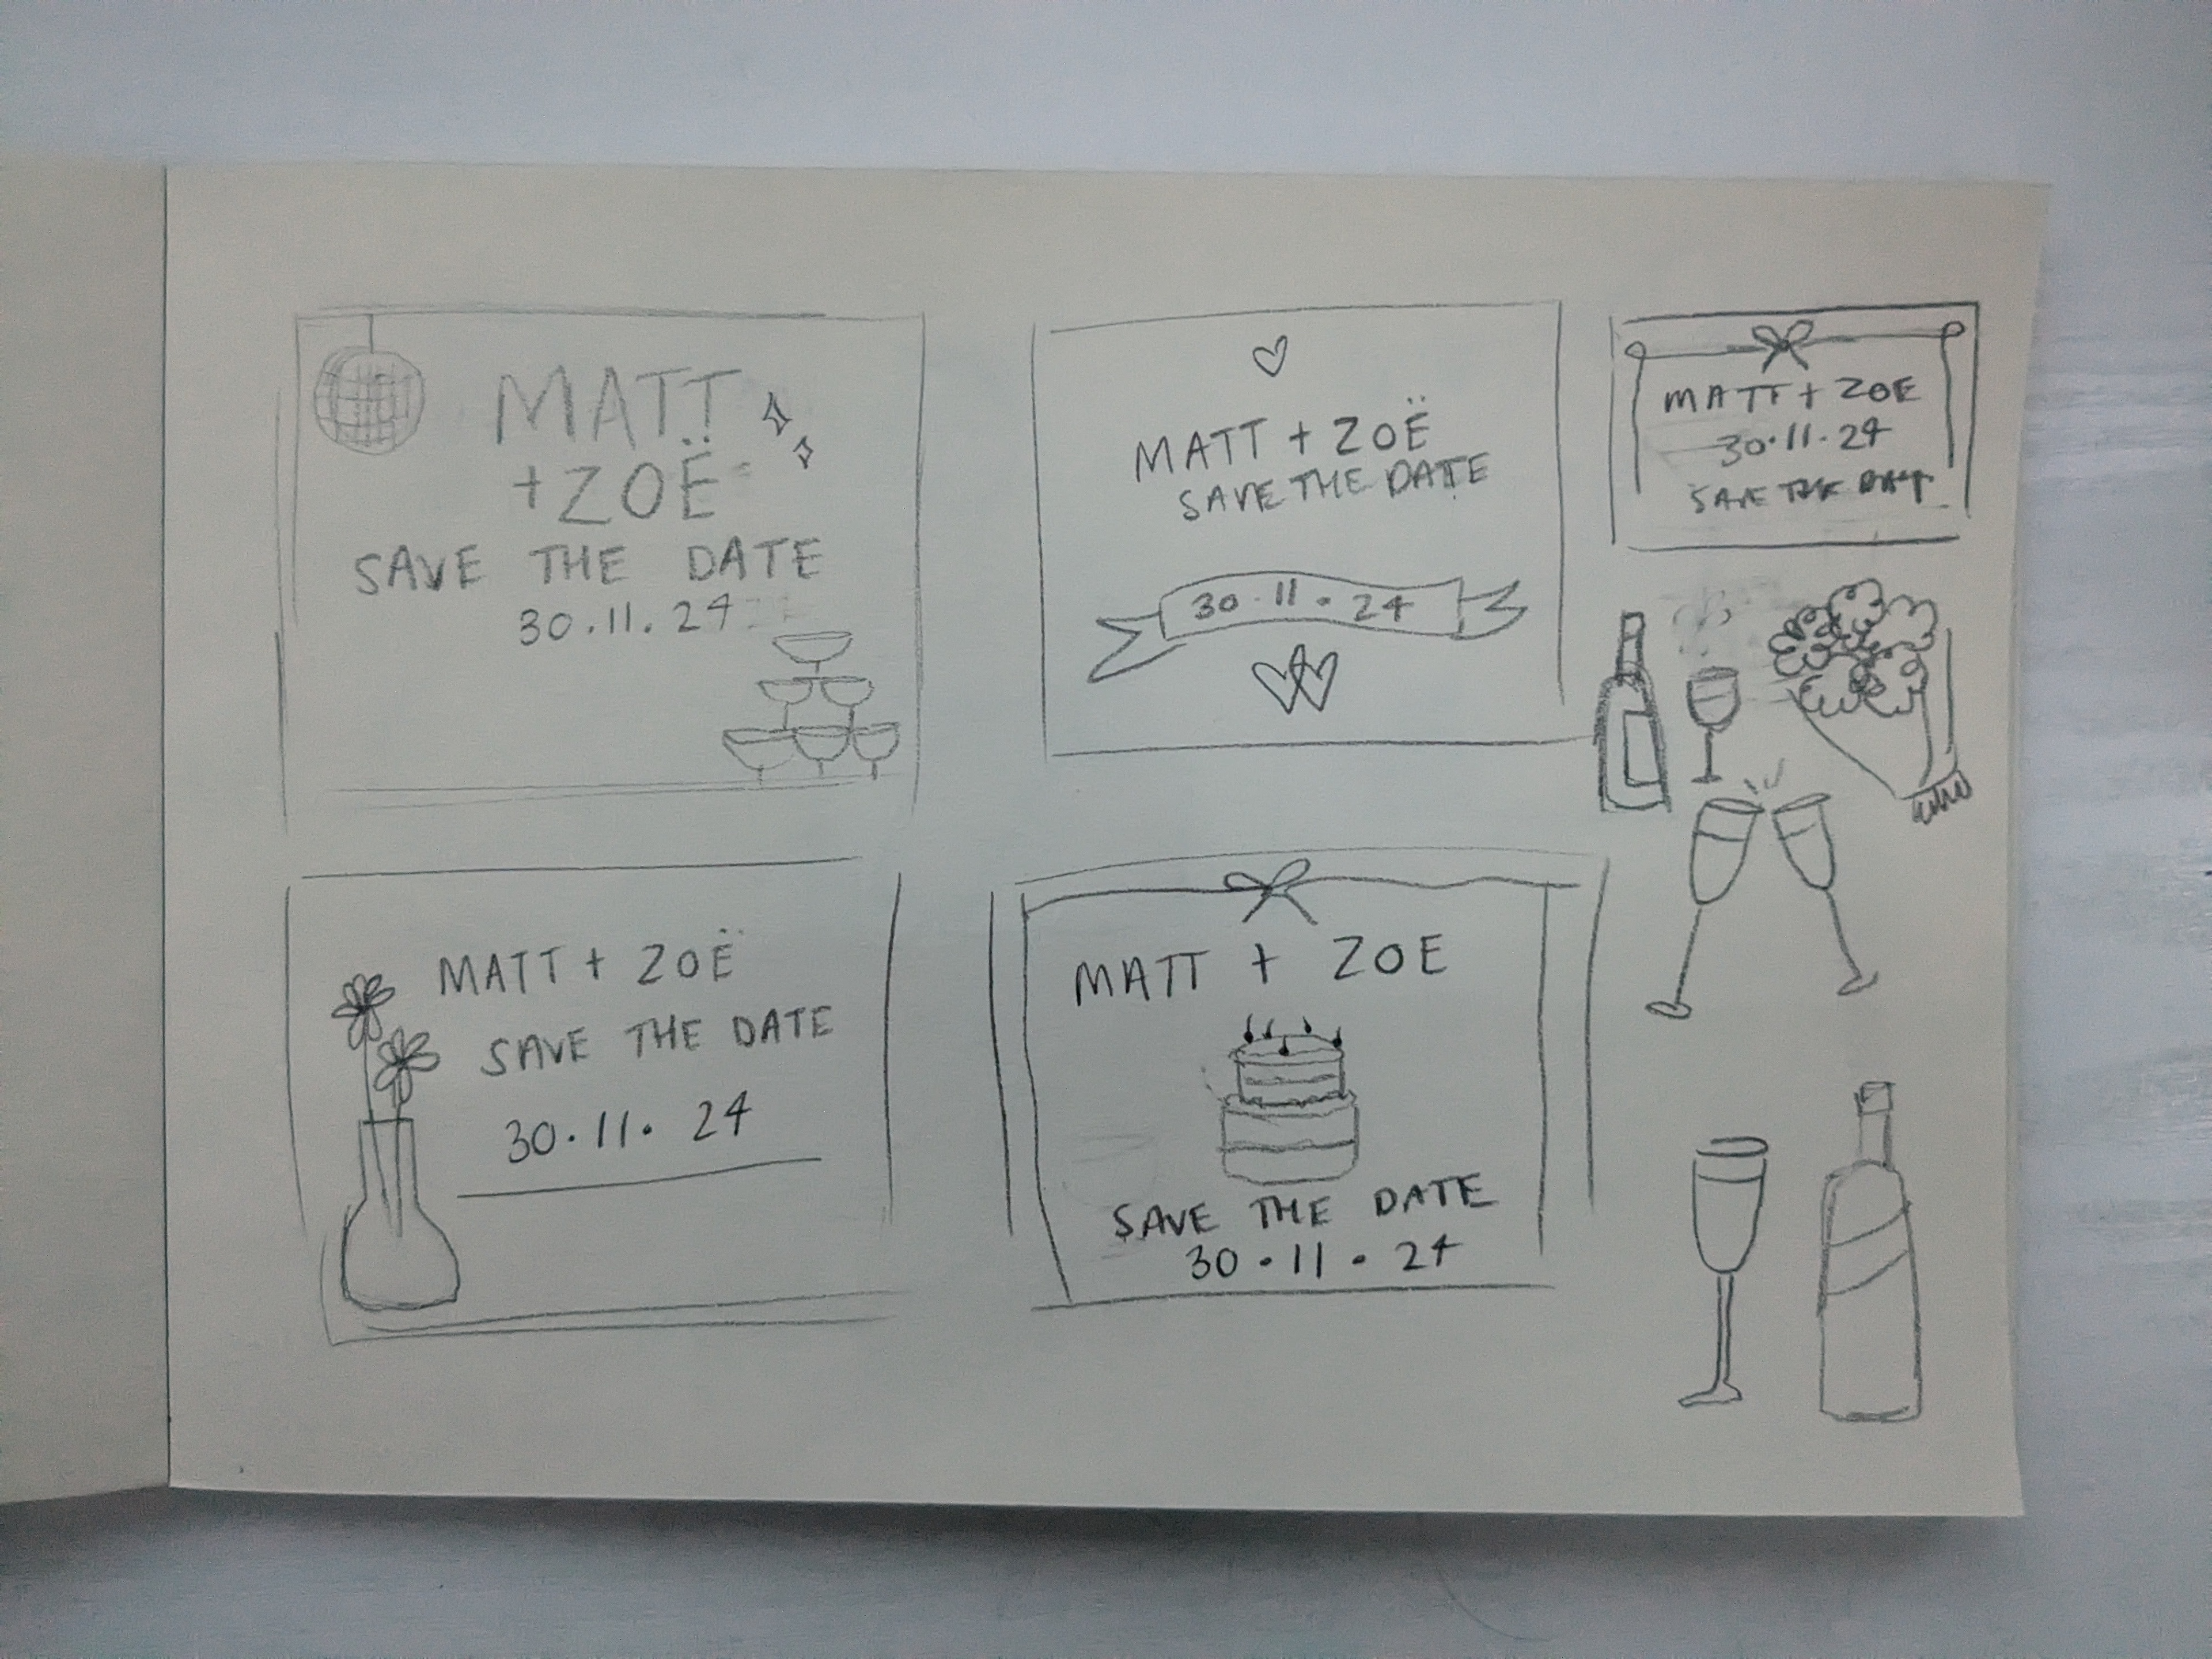 MATT
+ZOË
SAVE THE DATE
30.11.24
MATT + ZOË
SAVE THE DATE
30·11·24
MATT + ZOE
30·11·24
SAVE THE DAT
MATT + ZOË
SAVE THE DATE
30·11·24
MATT + ZOE
SAVE THE DATE
30·11·24